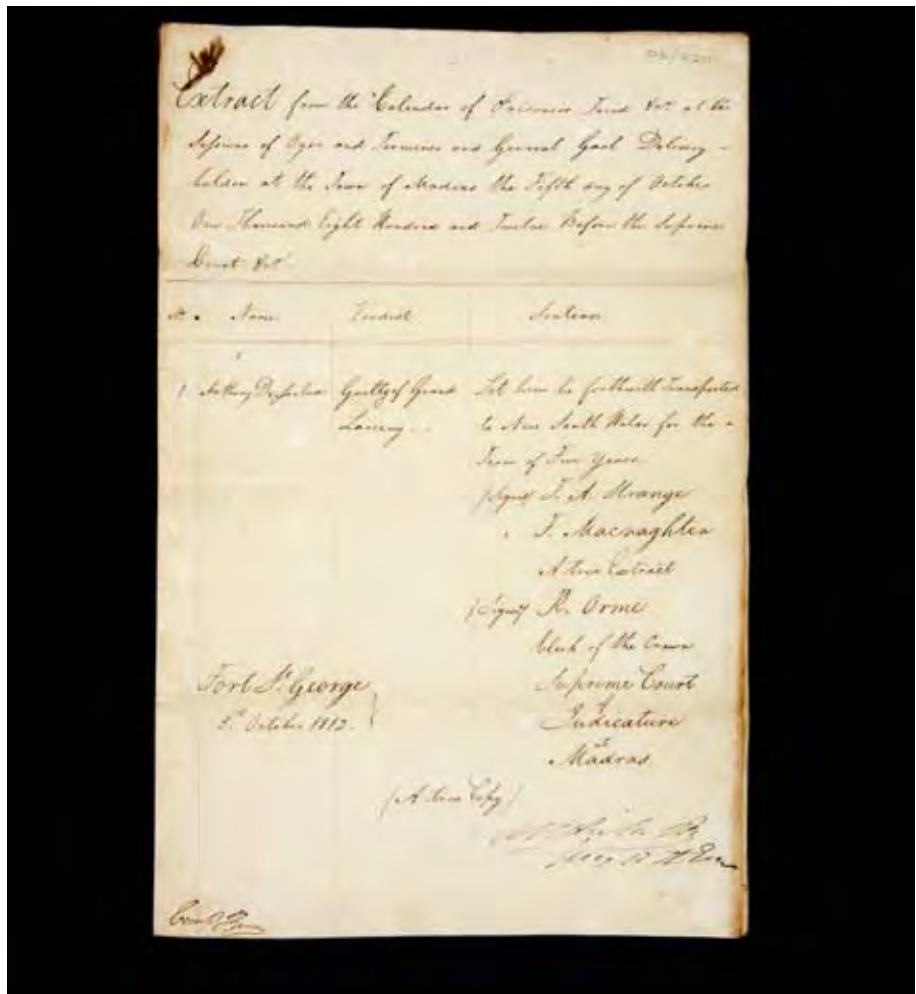 Extract from the Calendar of Prisoners Tried &ca at the
Sessions of Oyer and Terminer and General Gaol Delivery -
holden at the Town of Madras the Fifth day of October
One Thousand Eight Hundred and Twelve Before the Supreme
Court &ca
No. Name Verdict Sentence
1 Guilty of Grand Let him be forthwith Transported
Larceny to New South Wales for the
Term of Five Years
(Signed) T. A. Strange
" F. Macnaghten
A true Extract
(Signed) R. Orme
Clerk of the Crown
Fort St. George Supreme Court
of
5th October 1812. Judicature
at
Madras
(A true Copy)